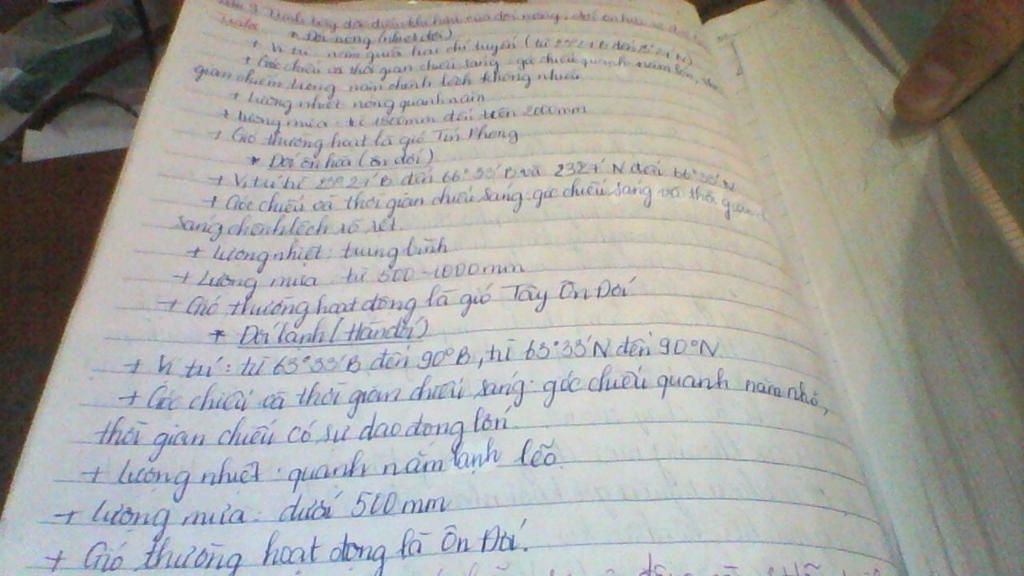 Trình bày đặc điểm khí hậu của đới nóng, đới ôn hòa và
* Đới nóng (nhiệt đới)
+ Vị trí: nằm giữa hai chí tuyến (từ 23°27'B đến
+ Góc chiếu và thời gian chiếu sáng: góc chiếu quanh năm lớn, thời
gian chiếu trong năm chênh lệch không nhiều
+ Lượng nhiệt nóng quanh năm
+ Lượng mưa: từ 1000mm đến trên 2000mm
+ Gió thường hoạt là gió Tín Phong
* Đới ôn hòa (ôn đới)
+ Vị trí từ 23°27'B đến 66°33'B và 23°27'N đến 66°33'N
+ Góc chiếu và thời gian chiếu sáng: góc chiếu sáng và thời gian
sáng chênh lệch rõ rệt
+ Lượng nhiệt: trung bình
+ Lượng mưa: từ 500-1000mm
+ Gió thường hoạt động là gió Tây Ôn Đới
* Đới lạnh (Hàn đới)
+ Vị trí: từ 63°33'B đến 90°B, từ 63°33'N đến 90°N
+ Góc chiếu và thời gian chiếu sáng: góc chiếu quanh năm nhỏ,
thời gian chiếu có sự dao động lớn.
+ Lượng nhiệt: quanh năm lạnh lẽo.
+ Lượng mưa: dưới 500mm
+ Gió thường hoạt động là Ôn Đới.